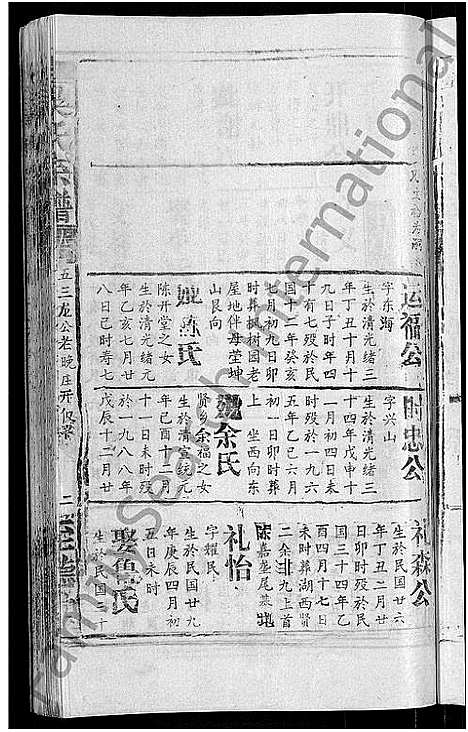 吴氏宗谱
五三龙公老晚庄开仅幕
运福公
字东海
生於清光绪三
年丁丑十月十
九日子时年四
十有七殁於民
国十二年癸亥
七月初九日卯
时葬枫树园老
屋地伴母茔坤
山艮向
妣陈氏
陈开堂之女
生於清光绪元
年乙亥七月廿
八日己时寿七
时忠公
字兴山
生於清光绪三
十四年戊申十
一月初四日未
时殁於一九六
五年乙巳六月
初一日卯时葬
上 坐西向东
娶余氏
贤乡余福之女
生於清宣统元
年己酉十二月
十一日未时殁
於一九八八年
戊辰十二月廿
礼森公
生於民国廿六
年丁丑二月廿
日卯时殁於民
国三十四年乙
酉四月十七日
未时葬湖西贤
二余非九上首
陈嘉垄尾墓地
礼怡
字耀民
生於民国廿九
年庚辰四月初
五日未时
娶鱼氏
生於民国三十
Family Search International